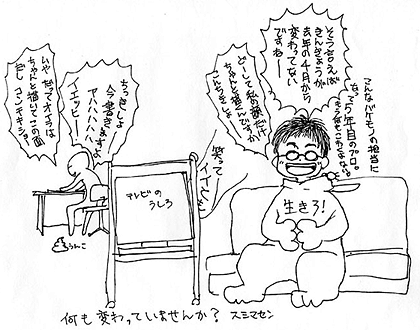 こんなバケモノの担当に
なって
年目のプロ。
そう言えば
きんきょうが
去年の4月から
変わってない
ですねー
どーして私の顔だけ
ちゃんと描くんですか
こんちきしょう
笑って
ちっきしょ
今書きますよ
アハハハハ
イエッピー
いや だって オイラは
ちゃんと描いてこの面
だし コンチキショー
生きろ!
テレビの
うしろ
うんこ
何も変わっていませんか? スミマセン